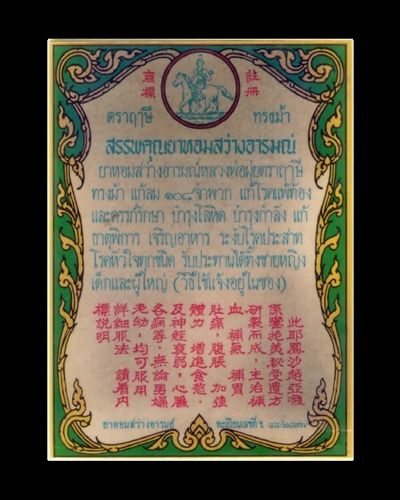 商標
註冊
ตราฤๅษี ทรงม้า
สรรพคุณยาหอมสว่างอารมณ์
ยาหอมสว่างอารมณ์หลวงพ่อมุ่ยตราฤๅษี
ทรงม้า แก้ลม ๑๐๘ จำพวก แก้โรคแพ้ท้อง
และครรภ์รักษา บำรุงโลหิต บำรุงกำลัง แก้
ธาตุพิการ เจริญอาหาร ระงับโรคประสาท
โรคหัวใจทุกชนิด รับประทานได้ทั้งชายหญิง
เด็กและผู้ใหญ่ (วิธีใช้แจ้งอยู่ในซอง)
此耶鳳沙越亞
係鑾抱美秘受遺方
研製而成，主治補
血，補氣，補胃
肚痛，腹脹，加強
體力，增進食慾，
及神經衰弱，心臟
各病等，無論男婦
老幼，均可服用
詳細服法，請看內
標說明
ยาหอมสว่างอารมณ์ ทะเบียนเลขที่